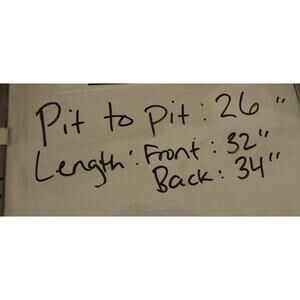 Pit to pit : 26 "
Length : Front : 32"
Back : 34"